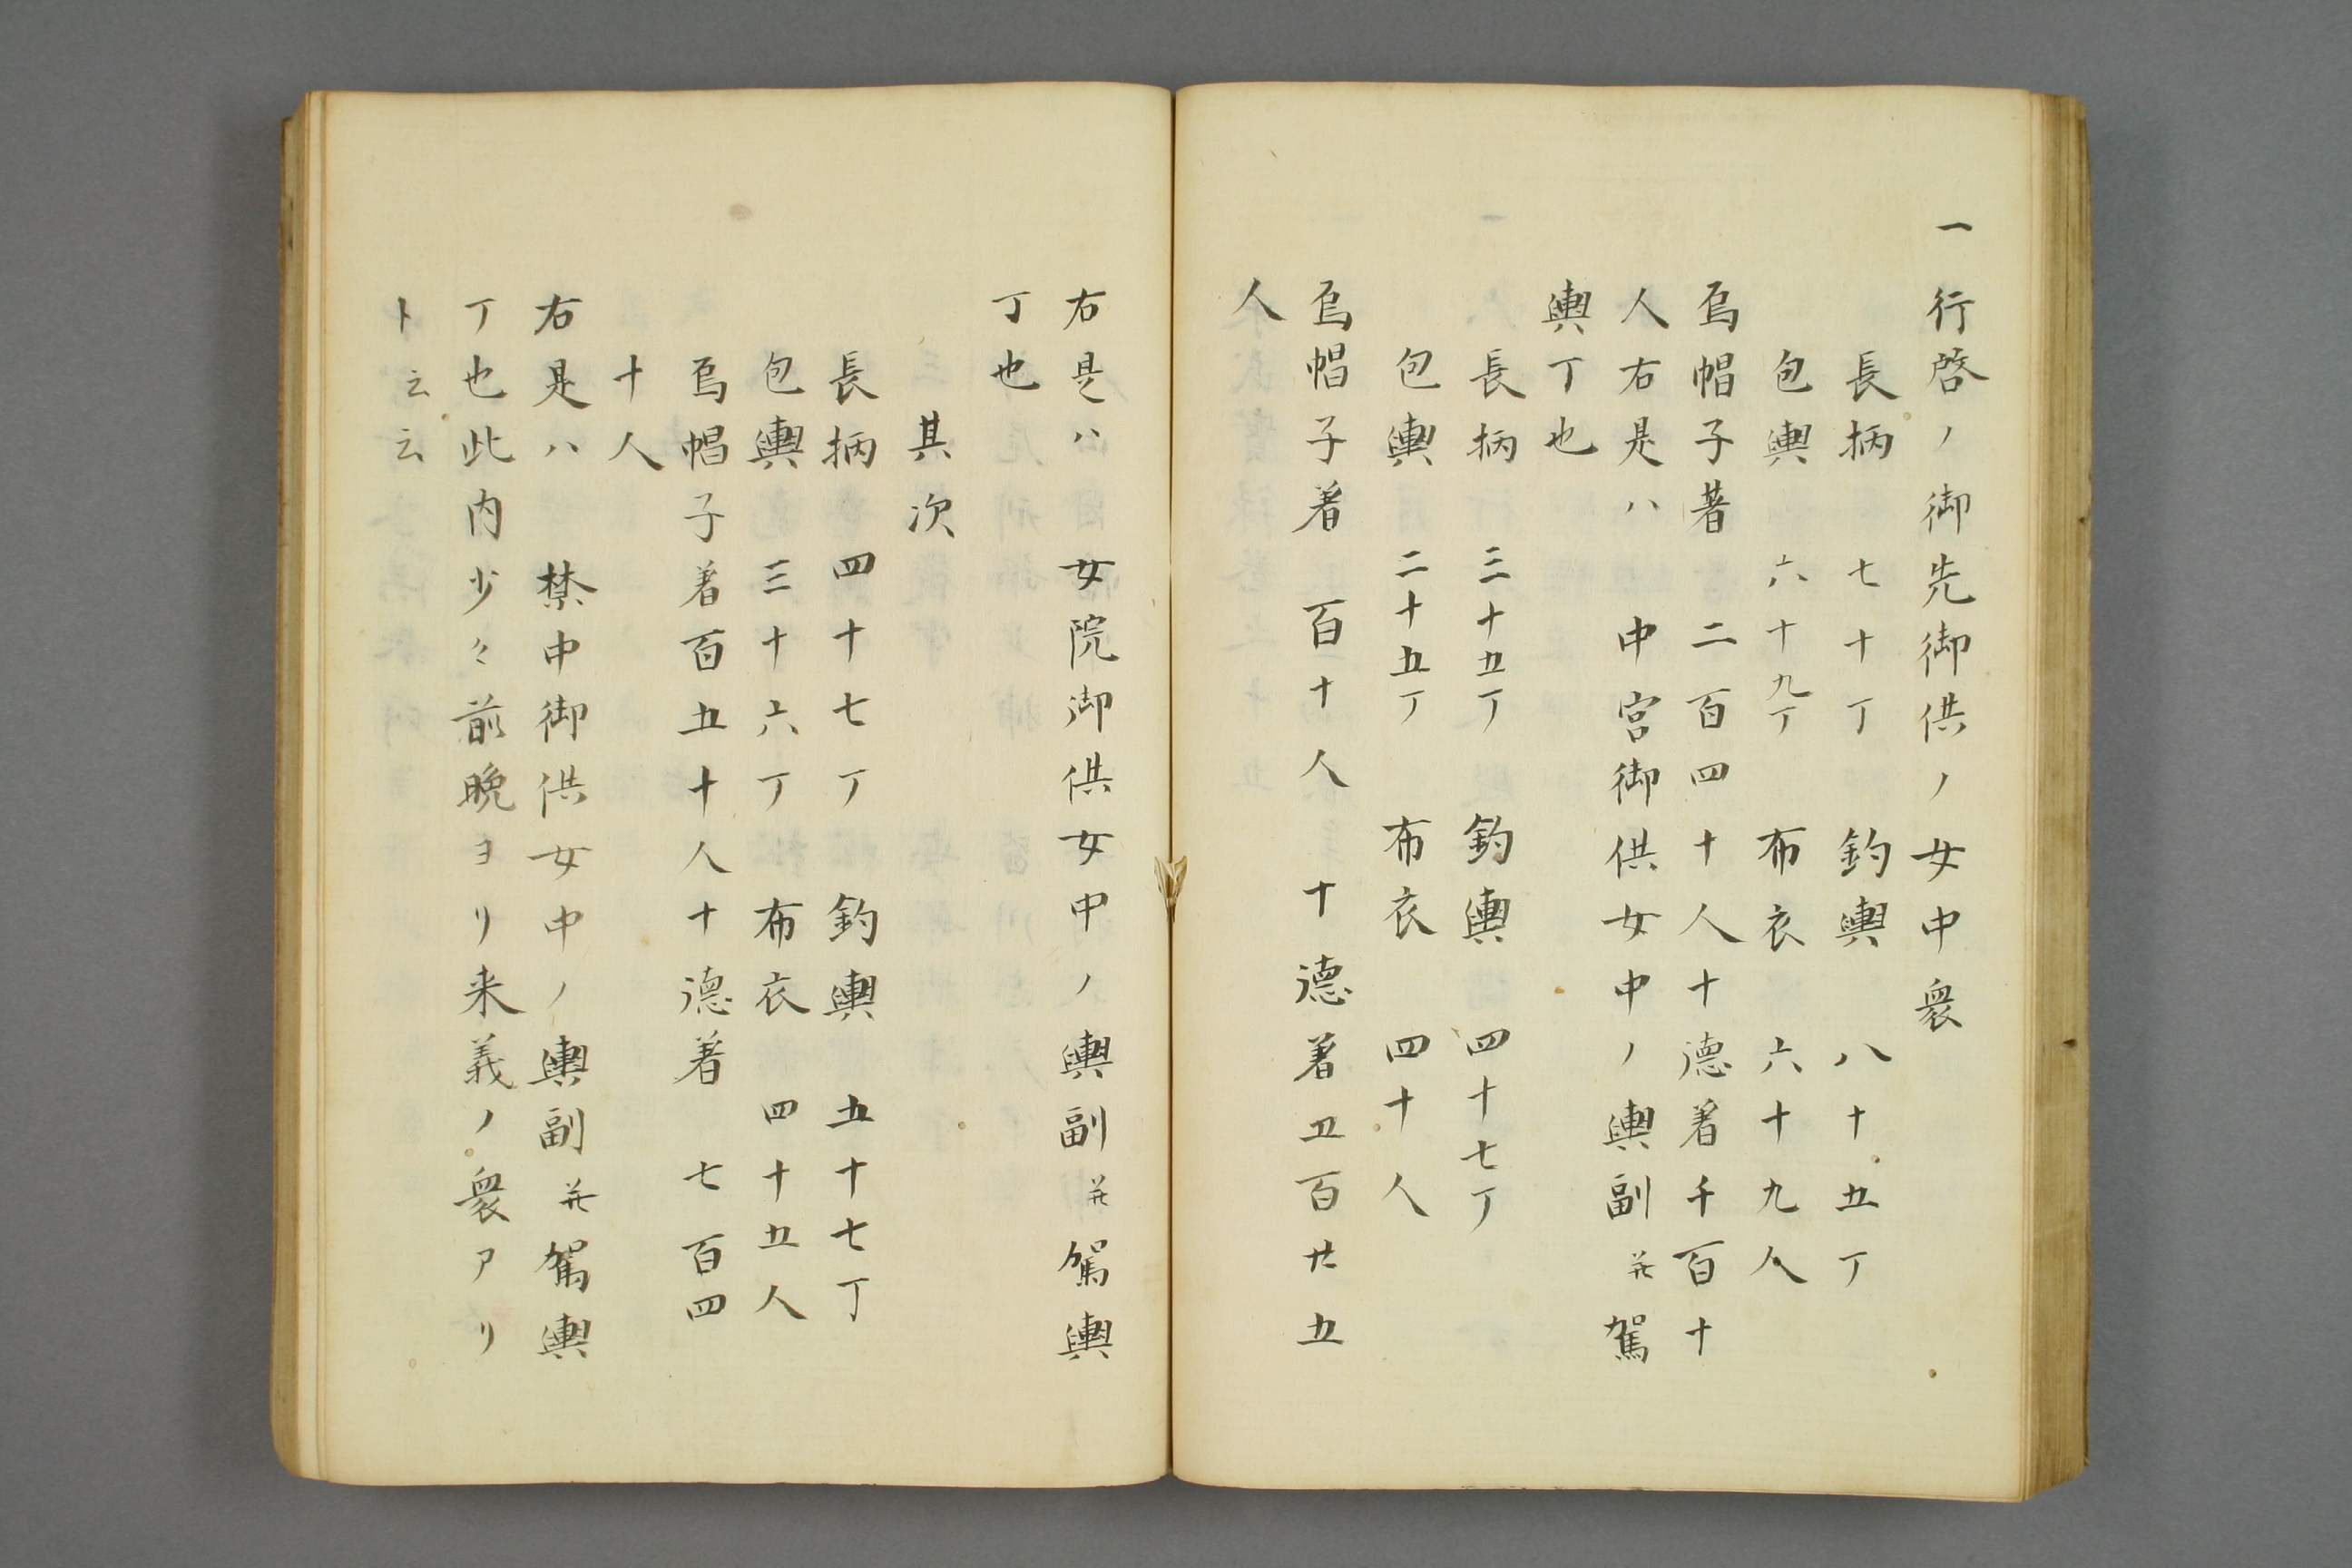 一行啓ノ御先御供ノ女中衆
長柄　七十丁　釣輿　八十五丁
包輿　六十九丁　布衣　六十九人
烏帽子著　二百四十人十德着千百十
人右是ハ　中宮御供女中ノ輿副并駕
輿丁也
長柄　三十五丁　釣輿　四十七丁
包輿　二十五丁　布衣　四十人
烏帽子着　百十人　十德着五百廿五
人
右是ハ　女院御供女中ノ輿副并駕輿
丁也
其次
長柄　四十七丁　釣輿　五十七丁
包輿　三十六丁　布衣　四十五人
烏帽子着百五十人十德着　七百四
十人
右是ハ　禁中御供女中ノ輿副并駕輿
丁也此内少々前晩ヨリ来義ノ衆アリ
ト云云